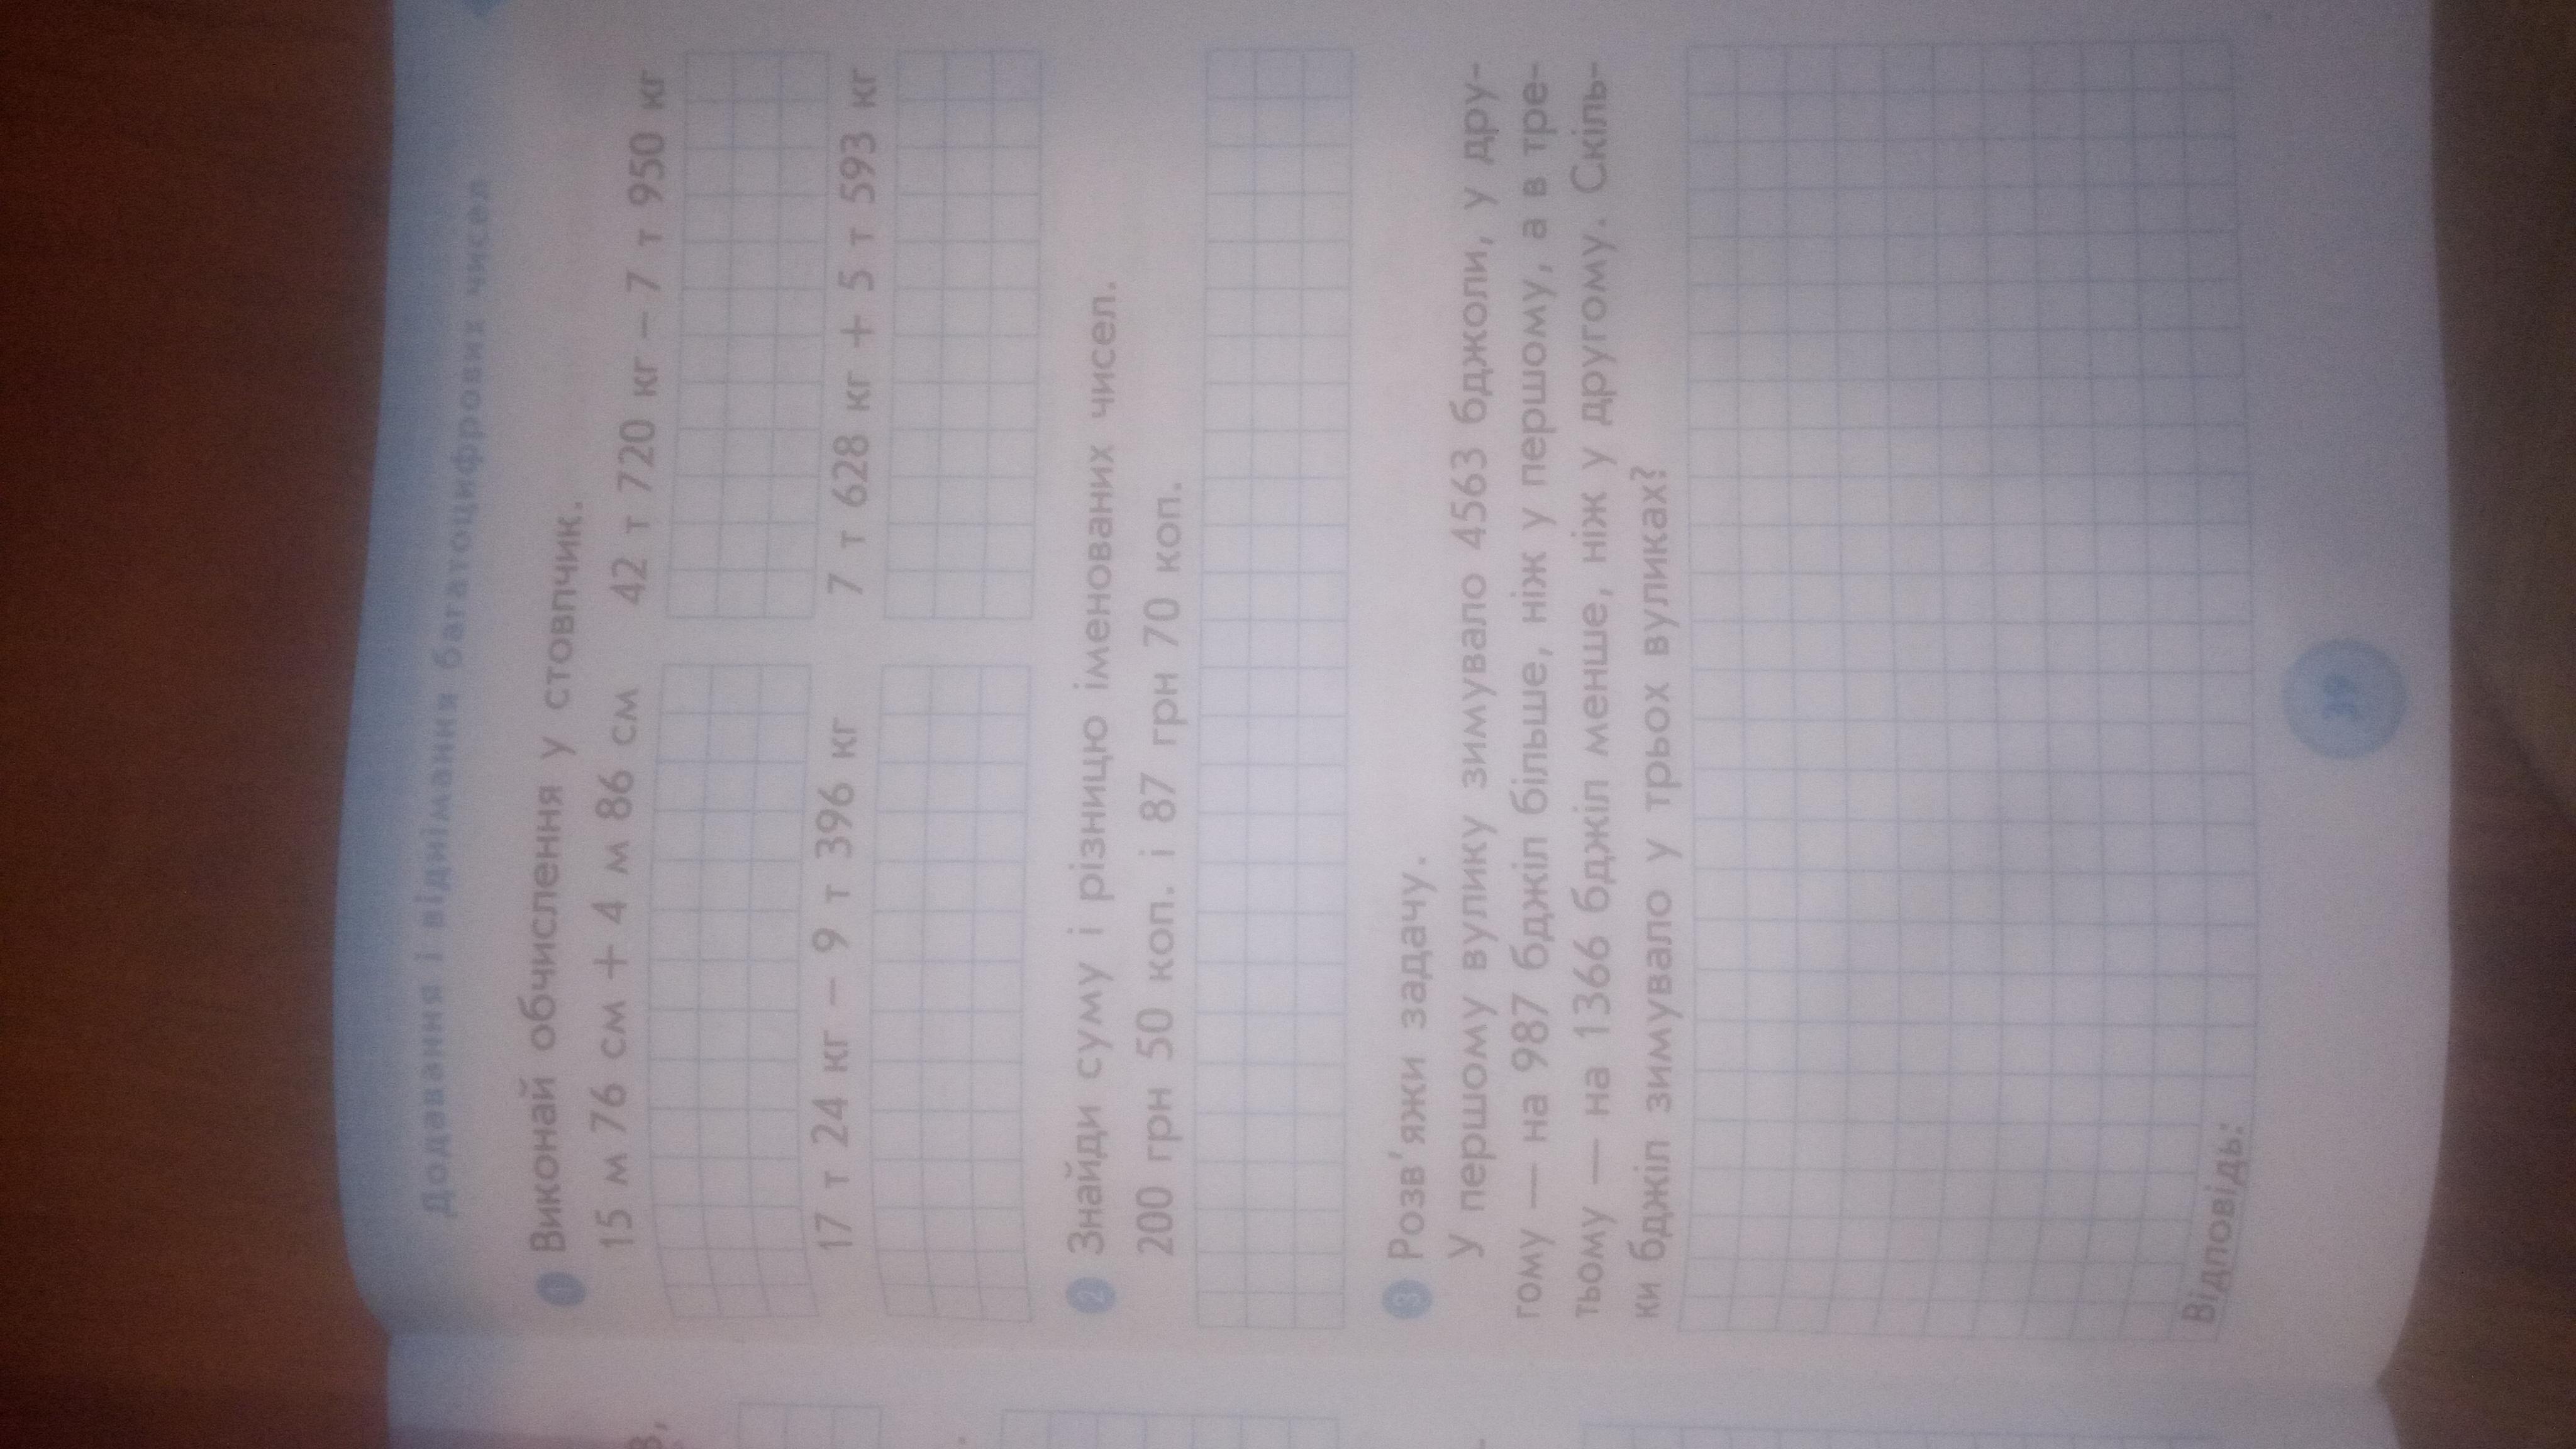 Додавання і віднімання багатоцифрових чисел
1 Виконай обчислення у стовпчик.
15 м 76 см + 4 м 86 см 42 т 720 кг − 7 т 950 кг
17 т 24 кг − 9 т 396 кг 7 т 628 кг + 5 т 593 кг
2 Знайди суму і різницю іменованих чисел.
200 грн 50 коп. і 87 грн 70 коп.
3 Розв'яжи задачу.
У першому вулику зимувало 4563 бджоли, у дру-
гому — на 987 бджіл більше, ніж у першому, а в тре-
тьому — на 1366 бджіл менше, ніж у другому. Скіль-
ки бджіл зимувало у трьох вуликах?
Відповідь:
39